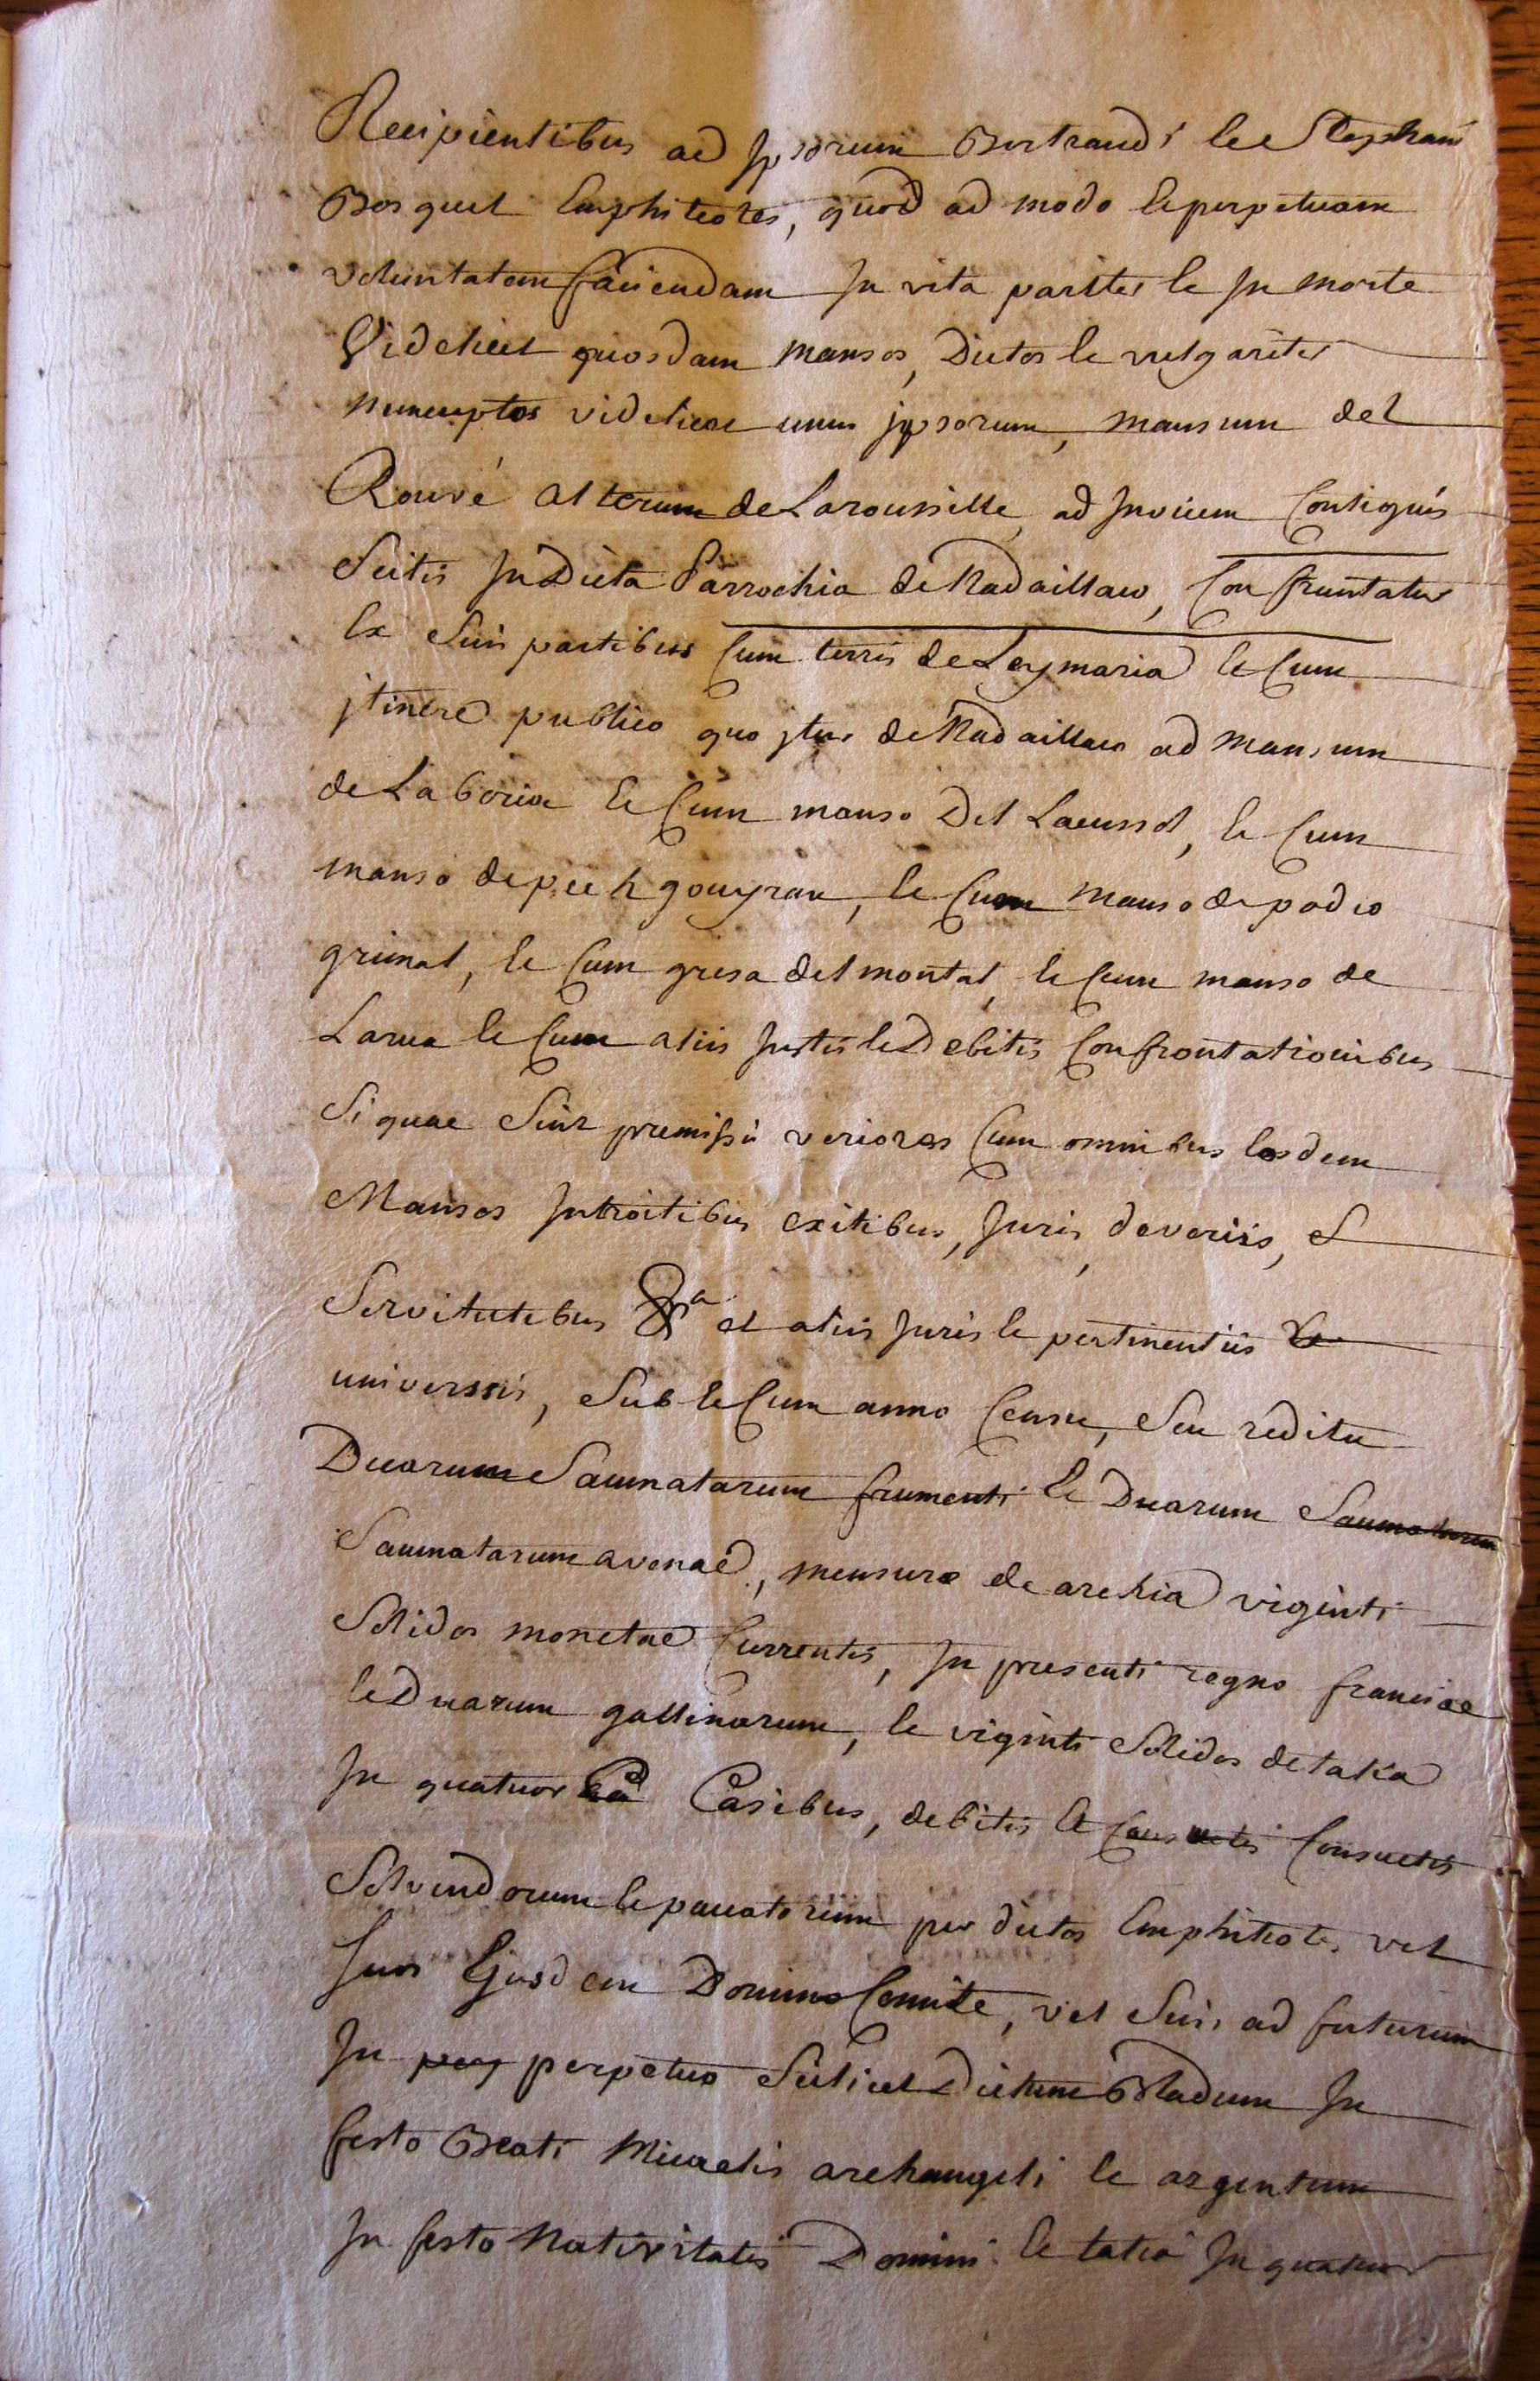 Recipientibus ad Ipsorum Bertrandi et Stephani
Bosquet Emphiteotes, quod ad modo et perpetuam
voluntatem faciendam In vita pariter et In morte
Videlicet quosdam mansos, Dictos et vulgariter
nuncuptos videlicet unus jpsorum, mansum del
Rouvé alterum de Laroussille, ad Invicem Contiguis
Scitis In Dicta Parrochia de Nadaillaco, Confruntatur
Ex Suis partibus Cum terris de Leymaria et Cum
jtinere publico quo jtur de Nadaillaco ad mansum
de La boria et Cum manso Del Lacussol, et Cum
manso de puech gouyran, et Cum manso de podio
grimal, et Cum gresa del montat, et Cum manso de
Larua et Cum aliis Justis et Debitis Confrontationibus
Si quae Sint premissis veriores Cum omnibus Eosdem
Mansos Introitibus exitibus, Juris, deveriis, et
Servitutibus &a et aliis Juris et pertinentiis et
universsis, Sub et Cum anno Censu, Seu reditu
Duarum Saumatarum frumenti et Duarum Saumatarum
Saumatarum avenae, mensurae de archia viginti
Solidos monetae Currentis, In presenti regno franciae
et Duarum gallinarum, et viginti Solidos de talia
In quatuor Ca Casibus, debitis et Consuetis Consuetis
Solvendorum et pacatorum per dictos Emphiteotes vel
Suos Ejusdem Domino Comite, vel Suis ad futurum
In pery perpetuo Scilicet Dictum Bladum In
festo Beati Micaelis archangeli et argentum
In festo Nativitatis Domini et talia In quatuor